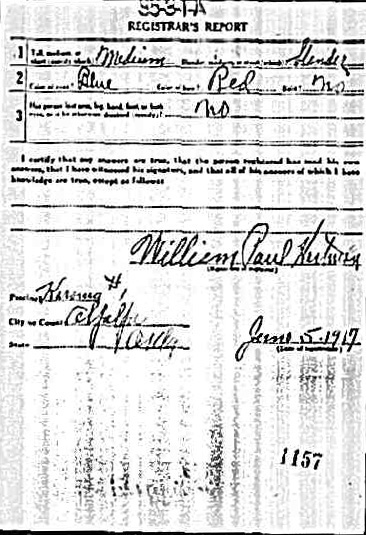 REGISTRAR'S REPORT
1 Tall, medium, or short (specify which)? Medium Slender, medium, or stout (which)? Slender
2 Color of eyes? Blue Color of hair? Red Bald? No
3 Has person lost arm, leg, hand, foot, or both
eyes, or is he otherwise disabled (specify)? No
I certify that my answers are true, that the person registered has read his own
answers, that I have witnessed his signature, and that all of his answers of which I have
knowledge are true, except as follows:
William Paul
(Signature of registrar)
Precinct
City or County Alfalfa
State Okla
June 5-1917
(Date of registration)
1157